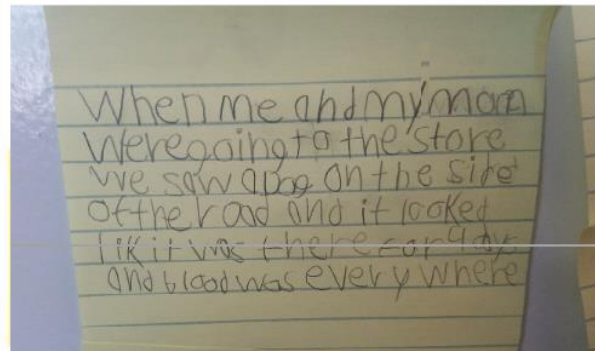 When me and my mom
Were going to the store
we saw a Dog on the side
of the road and it looked
lik it was there for 4 days
and blood was every where